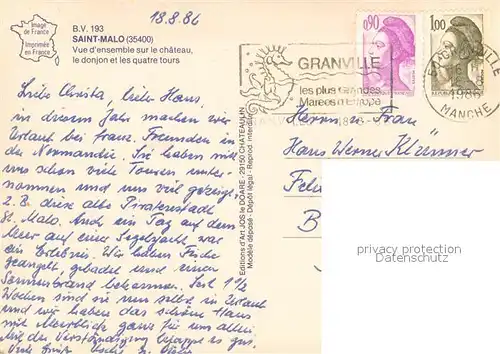 Image
de France
Imprimée
en France
B.V. 193
SAINT-MALO (35400)
Vue d'ensemble sur le château,
le donjon et les quatre tours
18.8.86
Liebe Christa, lieber Hans,
in diesem Jahr machen wir
Urlaub bei franz. Freunden in
der Normandie. Sie haben mit
uns schon viele Touren unter-
nommen und uns viel gezeigt,
z.B. diese alte Piratenstadt
St. Malo. Auch ein Tag auf dem
Meer auf einer Segelyacht war
ein Erlebnis. Wir haben Fische
geangelt, gebadet und einen
Sonnenbrand bekommen. Seit 1 1/2
Wochen sind sie nun selbst in Urlaub
und wir haben das schöne Haus
mit Meerblick ganz für uns allein.
Mit der Verständigung klappt es gut.
Viele Grüße
Editions d'Art JOS le DOARE - 29150 CHATEAULIN
Modèle déposé - Dépôt légal - Reprod. interdite
GRANVILLE
les plus Grandes
Marées d'Europe
0,90
1,00
1986
MANCHE
Herrn u. Frau
Hans Werner
B
privacy protection
datenschutz